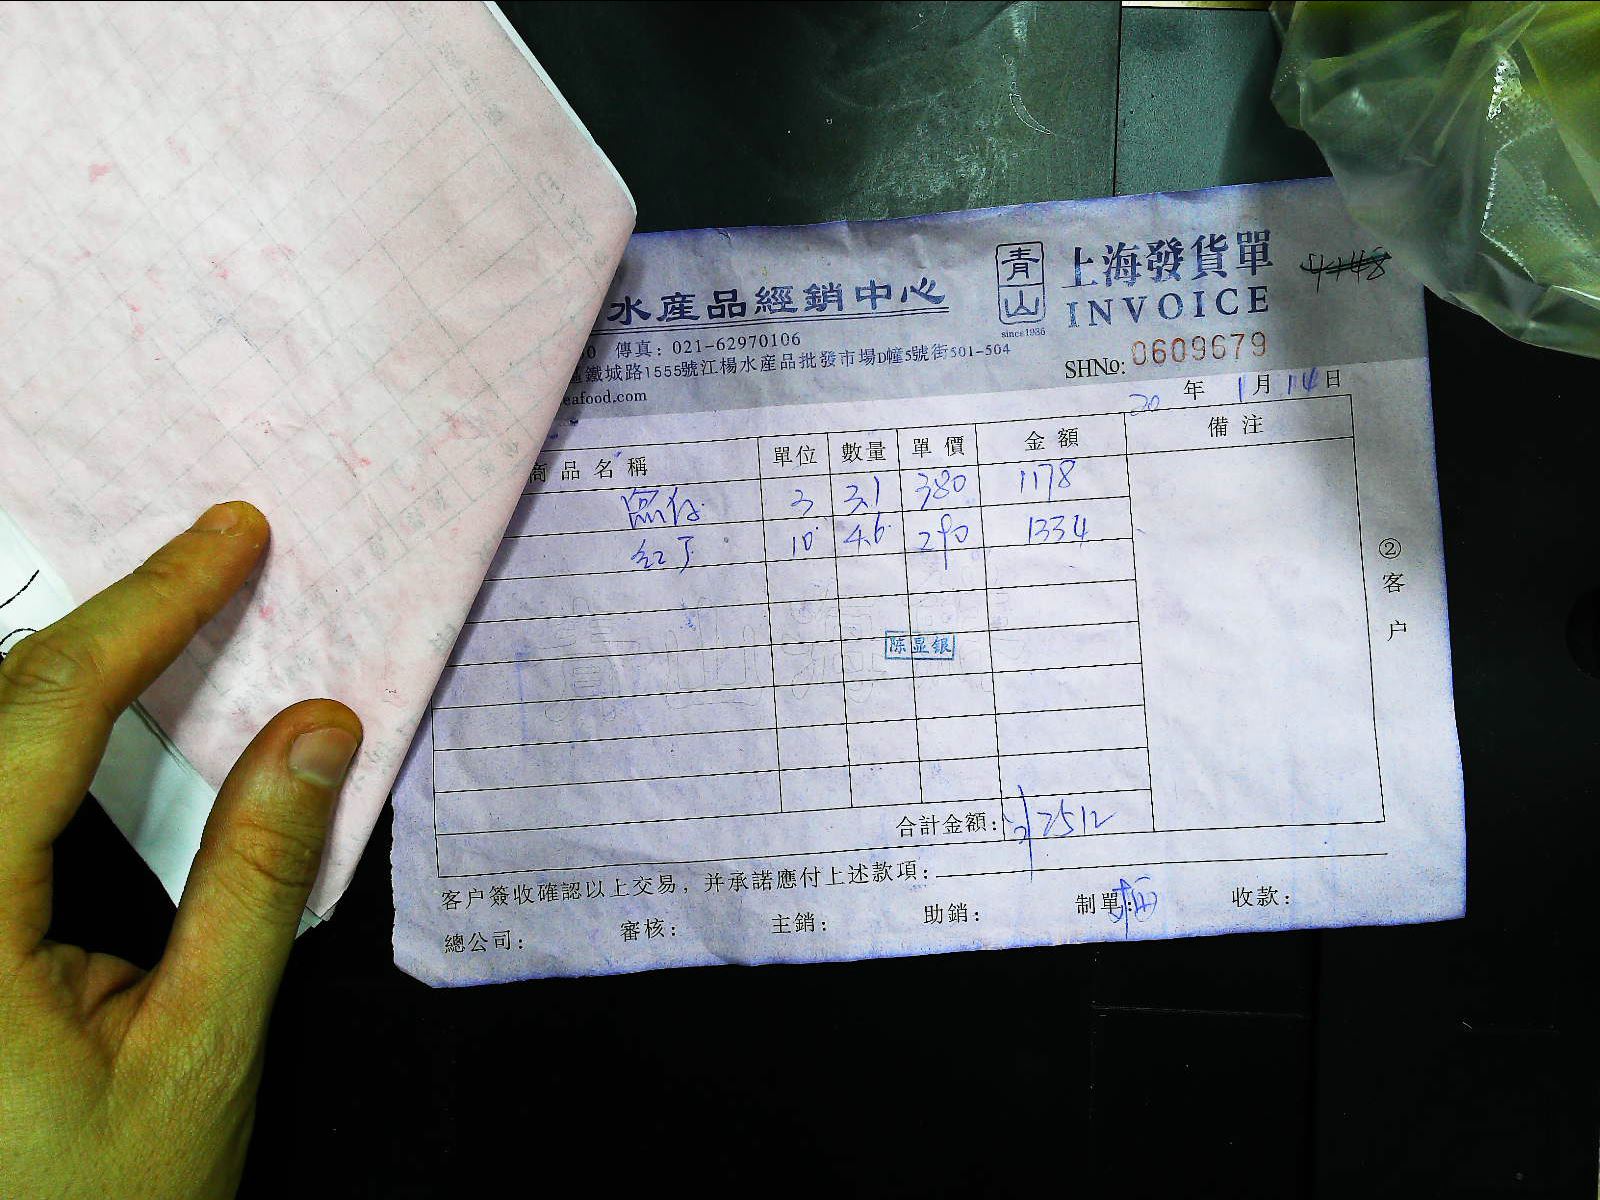 水產品經銷中心
青山
since1986
上海發貨單
INVOICE
傳真：021-62970106
鐵城路1555號江楊水產品批發市場D幢5號街501-504
eafood.com
SHNo: 0609679
20 年 1月 14日
商品名稱 單位 數量 單價 金額 備注
3 3.1 380 1178
红 10 4.6 290 1334
青山
陈显银
②客户
合計金額： 2512
客户簽收確認以上交易，并承諾應付上述款項：
總公司： 審核： 主銷： 助銷： 制單： 收款：